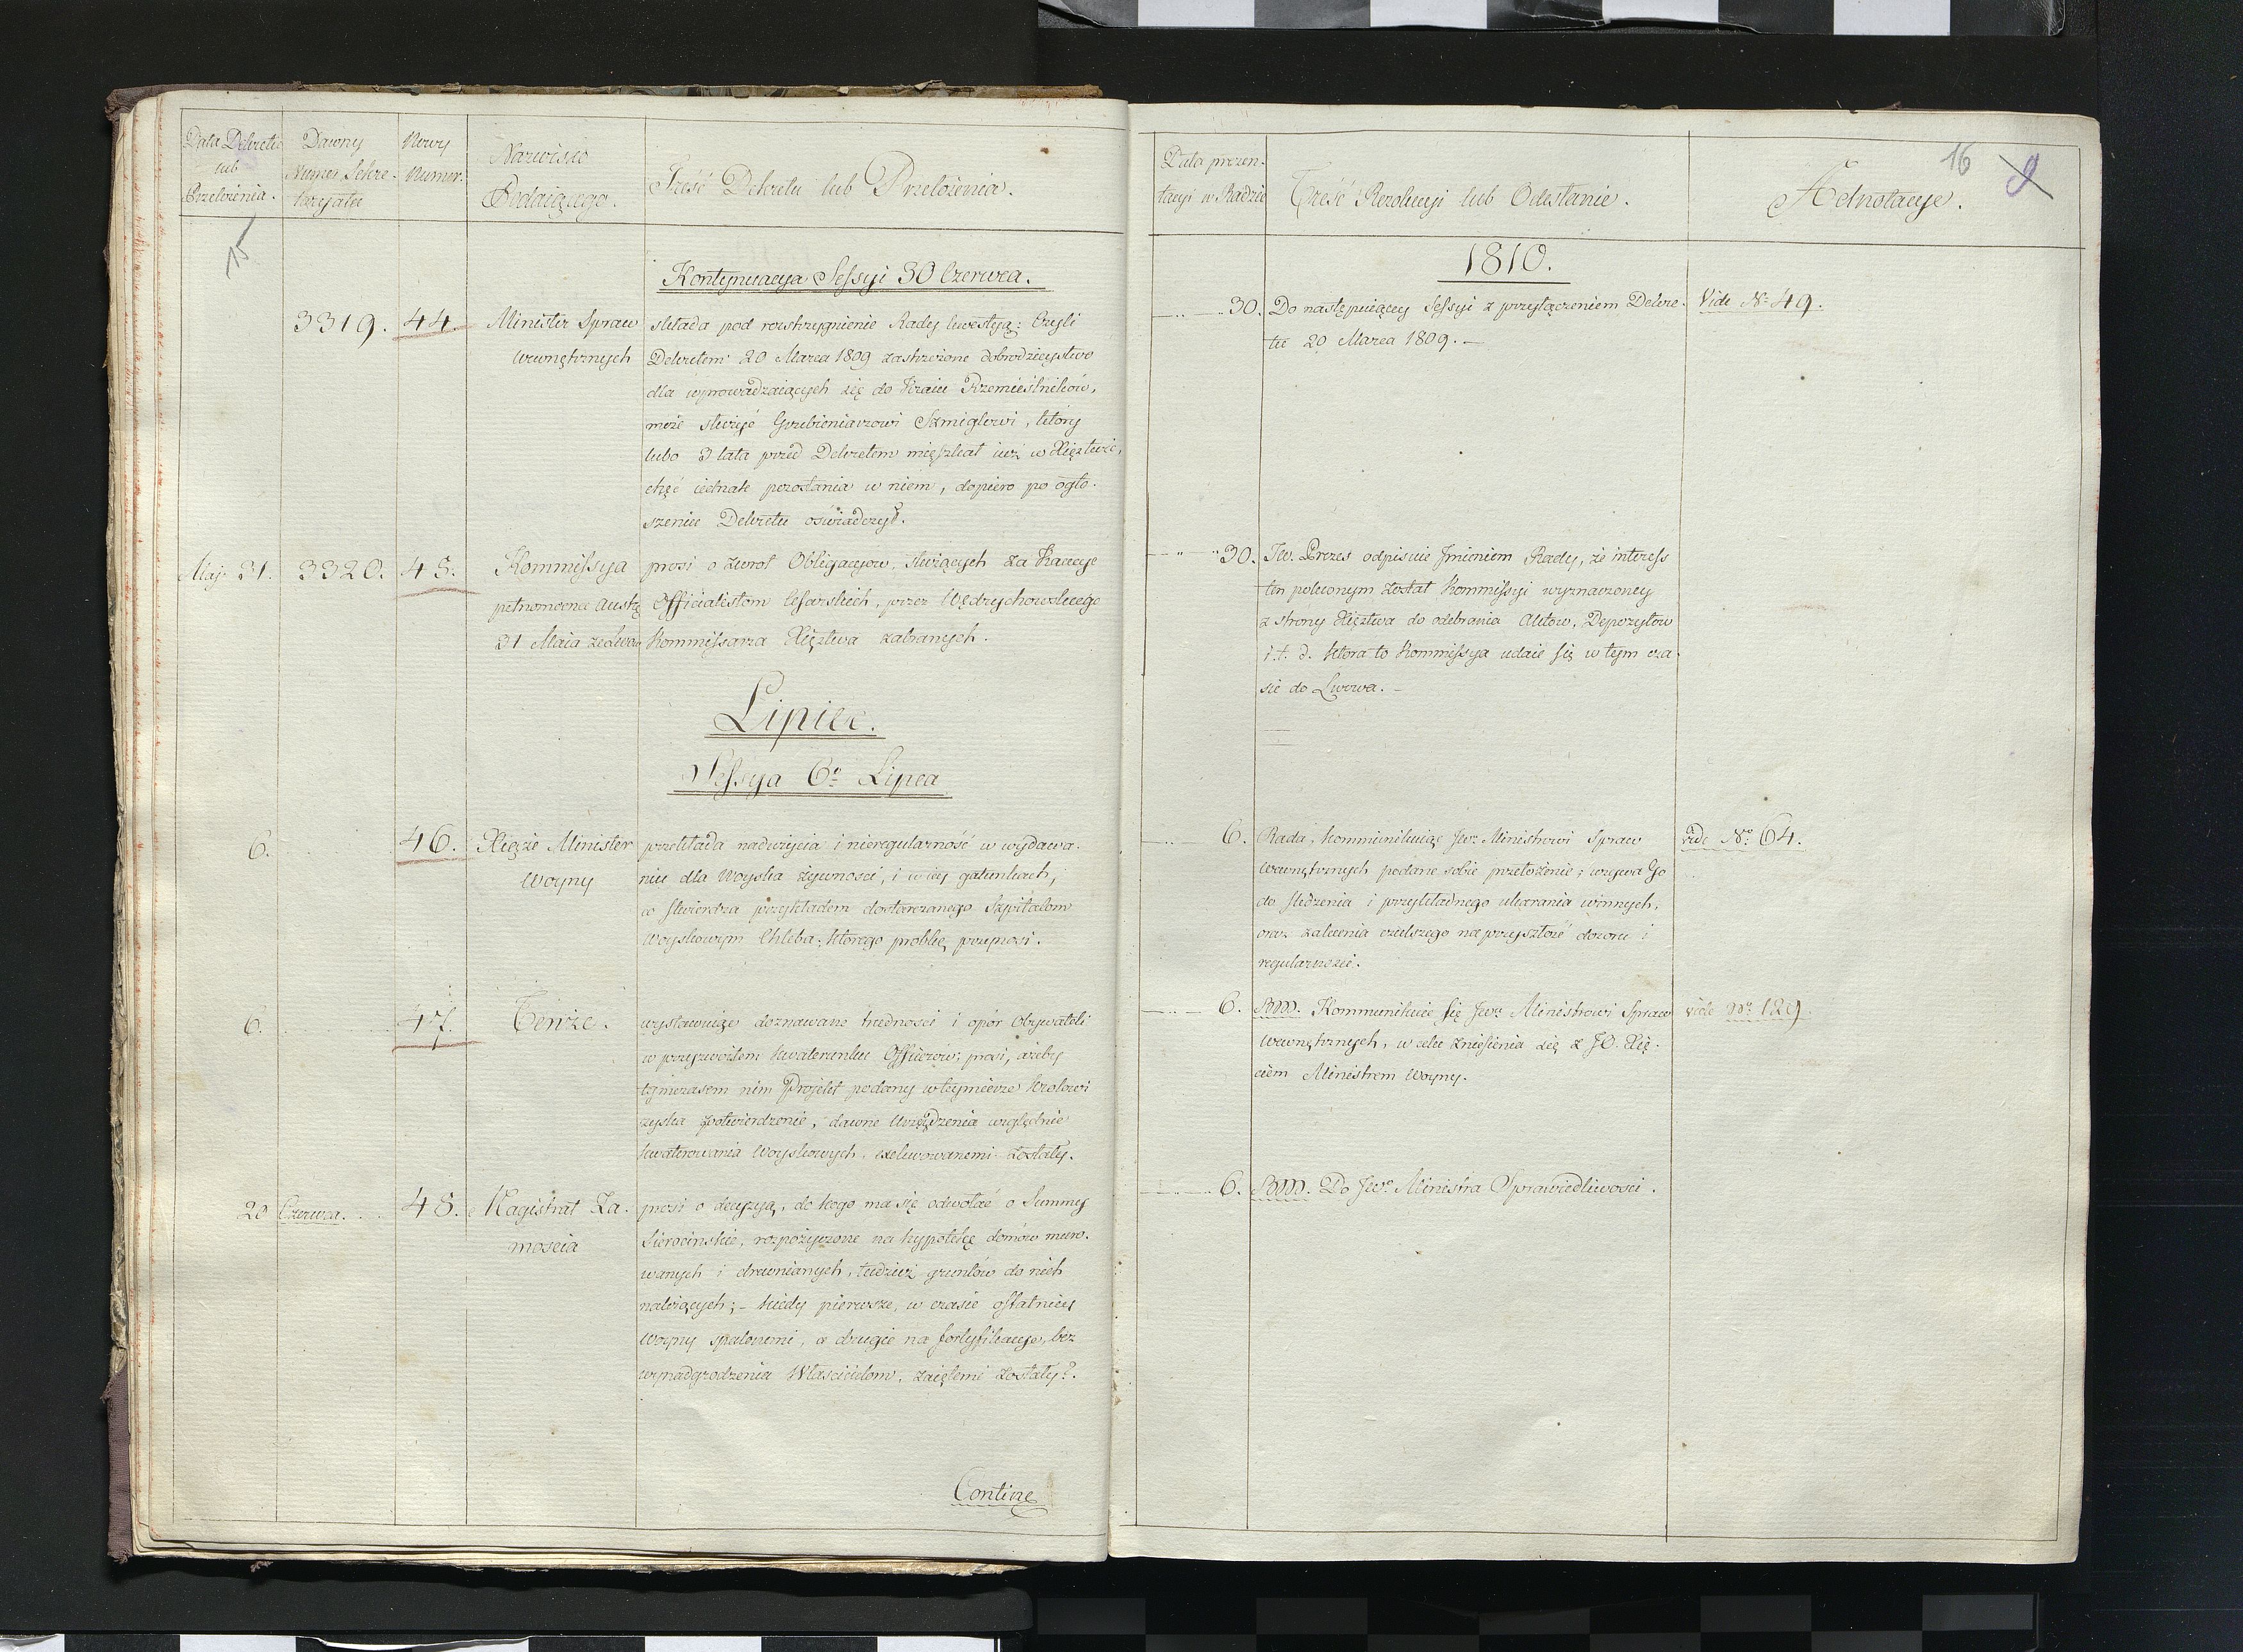 Data Dekretu
lub
Przełożenia.
Dawny
Numer Sekre-
taryatu
Nowy
Numer.
Nazwisko
Podaiącego.
Treść Dekretu lub Przełożenia.
15
Kontynuacya Sessyi 30 Czerwca.
3319. 44. Minister Spraw
wewnętrznych
składa pod rozstrzygnienie Rady kwestyą: Czyli
Dekretem 20 Marca 1809 zastrzeżone dobrodzieystwo
dla wprowadzaiących się do Kraiu Rzemieślników,
może służyć Grzebieniarzowi Szmiglowi, który
lubo 3 lata przed Dekretem mięszkał iuż w Xięztwie,
chęć iednak pozostania w niem, dopiero po ogło-
szeniu Dekretu oświadczył.
Maj 31. 3320. 45. Kommissya
pełnomocna Austr.
31 Maia ze Lwowa
prosi o zwrot Obligacyow, służących za Kaucye
Officialistom Cesarskich, przez Wędrychowskiego
Kommissarza Xięztwa zabranych.
Lipiec.
Sessya 6º Lipca
6. 46. Xiąże Minister
Woyny
przekłada nadużycia i nieregularność w wydawa-
niu dla Woyska żywnosci, i w iey gatunkach,
co stwierdza przykładem dostarczanego Szpitalom
Woyskowym Chleba, którego probkę przynosi.
6. 47. Tenże.
wystawuiąc doznawane trudnosci i opór Obywateli
w przyzwoitem kwaterunku Officerów; prosi, ażeby
tymczasem nim Projekt podany w teymierze Krolowi
zyska potwierdzenie, dawne Urządzenia względnie
kwaterowania Woyskowych, exekwowanemi zostały.
20 Czerwca. 48. Magistrat Za-
moscia
prosi o decyzyą, do kogo ma się odwołać o Summy
Sierocinskie, rozpożyczone na hypotekę domów muro-
wanych i drewnianych, tudzież gruntów do nich
należących; - kiedy pierwsze, w czasie ostatniey
Woyny spalonemi, a drugie na fortyfikacye, bez
wynadgrodzenia Włascicielom, zaiętemi zostały?.
Continę
Data prezen-
tacyi w Radzie
Treść Rezolucyi lub Odesłanie.
Adnotacye.
16
9
1810.
30. Do następuiącey Sessyi z przyłączeniem Dekre-
tu 20 Marca 1809. -
Vide Nº 49.
30. Jw. Prezes odpisuie Jmieniem Rady, że interess
ten poleconym został Kommissyi wyznaczoney
z strony Xięztwa do odebrania Aktów, Depozytow
i.t.d. która to Kommissya udaie się w tym cza-
sie do Lwowa. -
6. Rada, kommunikuiąc Jw. Ministrowi Spraw
Wewnętrznych podane sobie przełożenie; wzywa Go
do sledzenia i przykładnego ukarania winnych,
oraz zalecenia czulszego na przyszłość dozoru i
regularnosci.
vide Nº 64.
6. BM. Kommunikuie się Jw. Ministrowi Spraw
Wewnętrznych, w celu zniesienia się z JO. Xię-
ciem Ministrem Woyny.
vide Nº 129.
6. BM. Do Jwº Ministra Sprawiedliwosci.